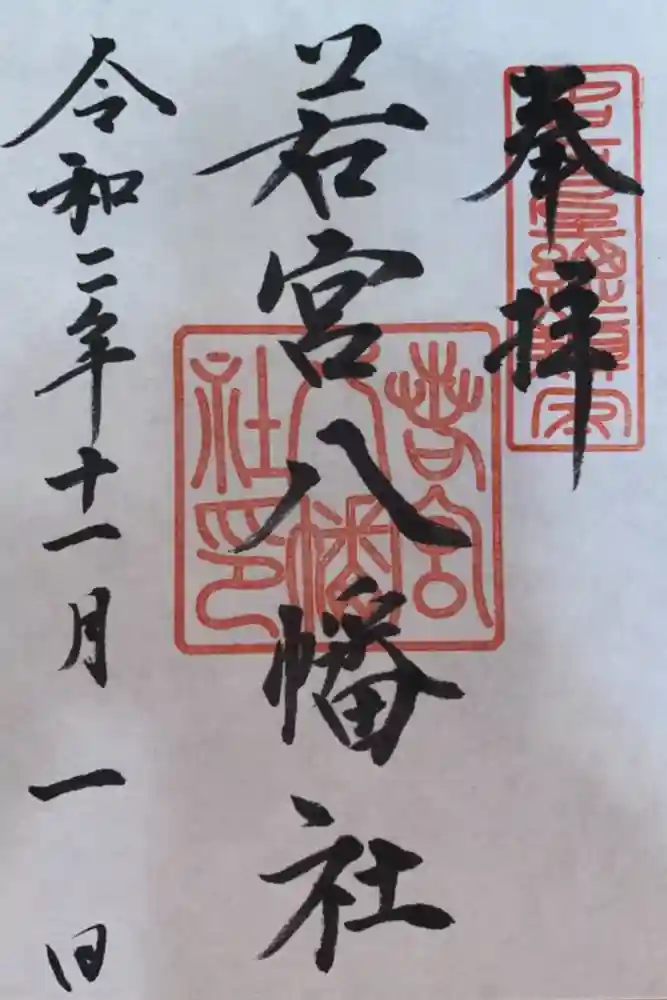 奉拝
若宮八幡社
若宮八幡社印
令和二年十一月一日